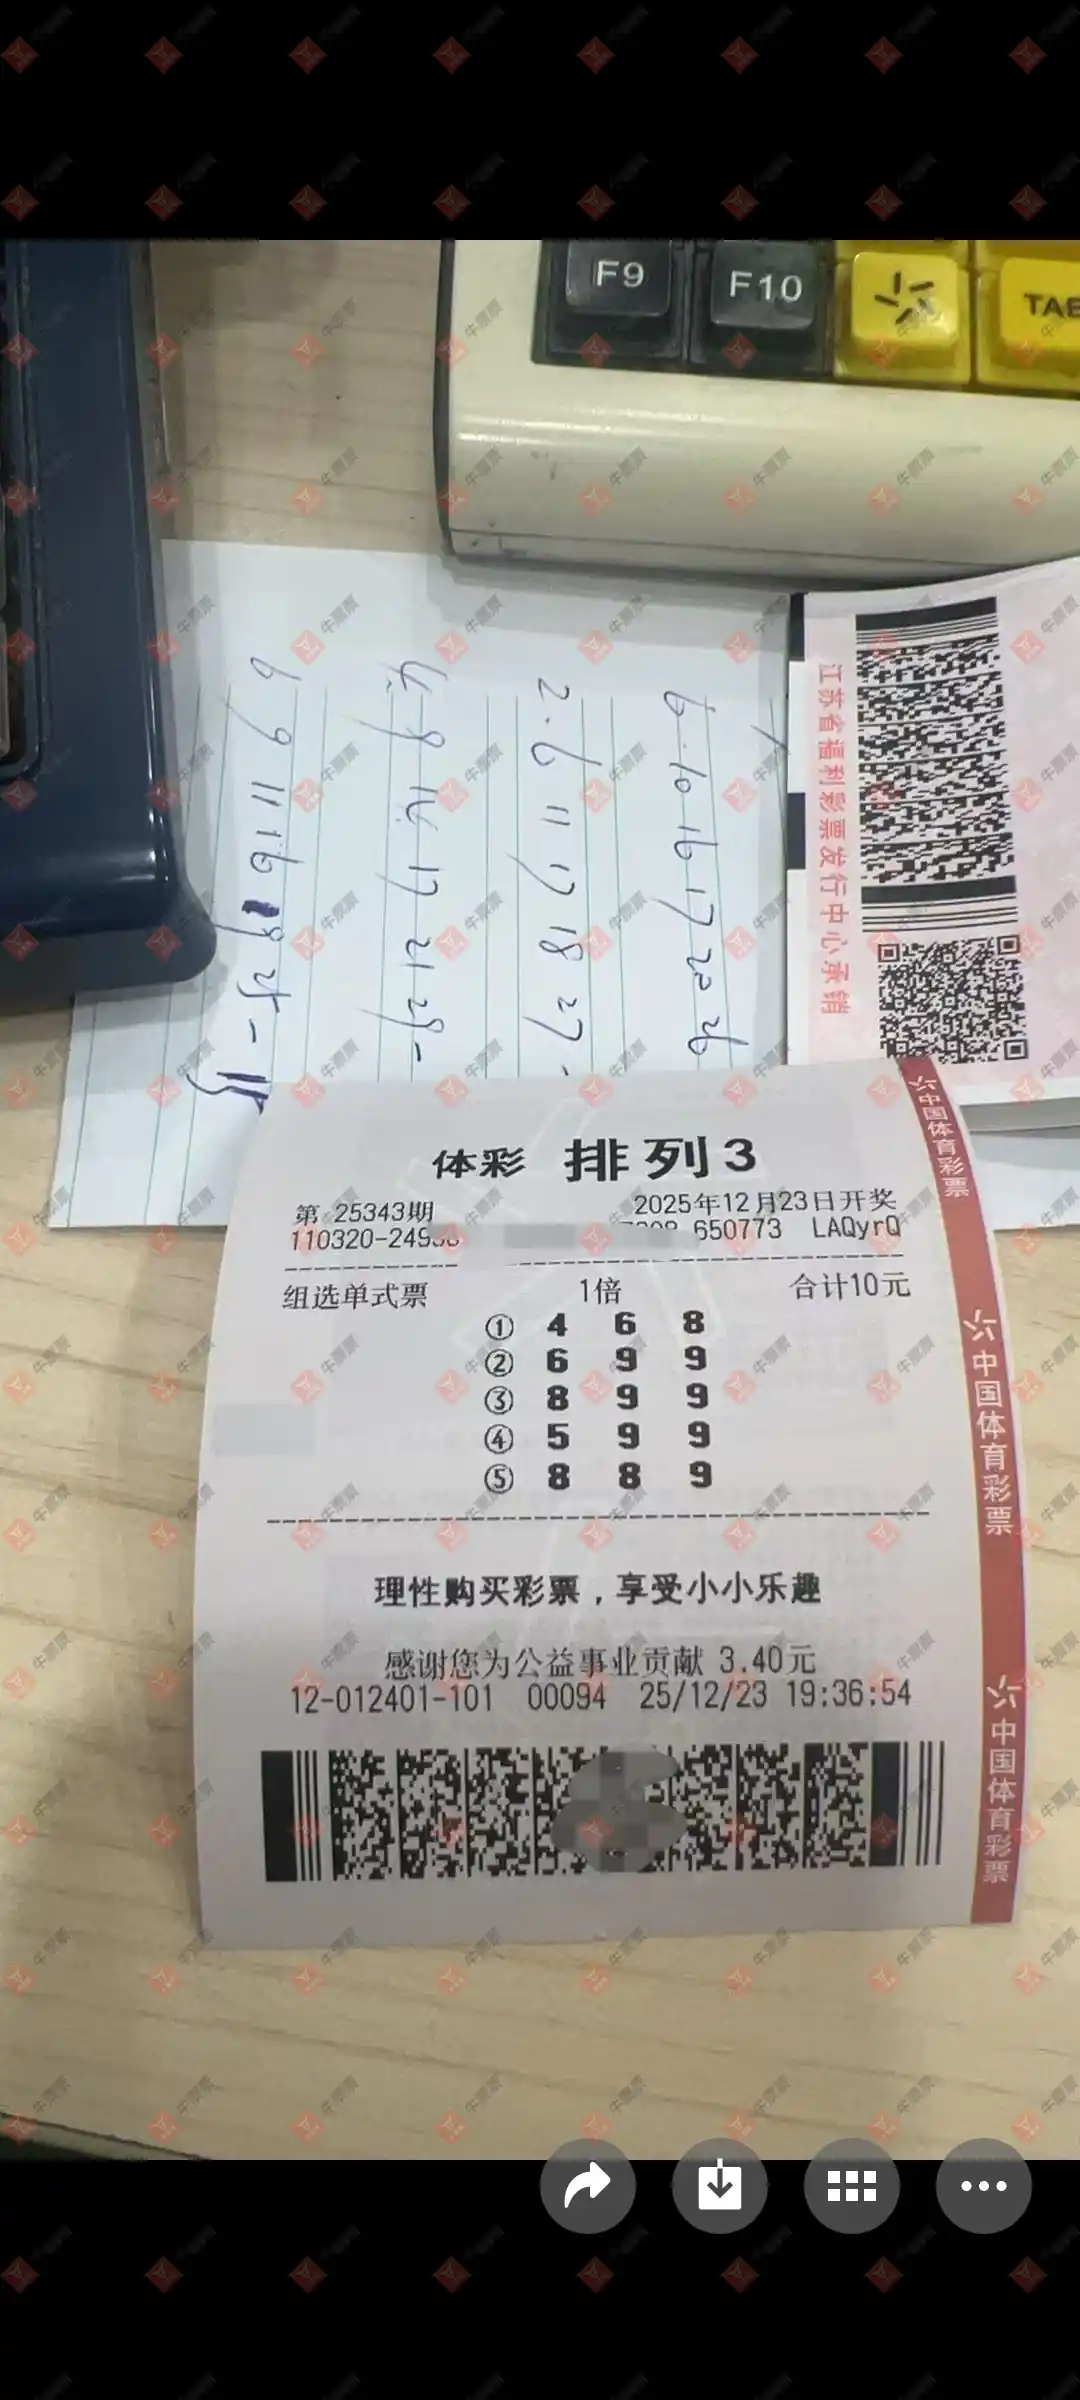 F9
F10
TAB
江苏省福利彩票发行中心承销
6.10 16 17 22 26
2.6 11 17 18 27-
4 9 16 17 21 29-
6 9 11 16 19 25-15
体彩 排列3
第 25343期 2025年12月23日开奖
110320-249 650773 LAQyrQ
组选单式票 1倍 合计10元
① 4 6 8
② 6 9 9
③ 8 9 9
④ 5 9 9
⑤ 8 8 9
理性购买彩票，享受小小乐趣
感谢您为公益事业贡献 3.40元
12-012401-101 00094 25/12/23 19:36:54
中国体育彩票
中国体育彩票
中国体育彩票
牛票票